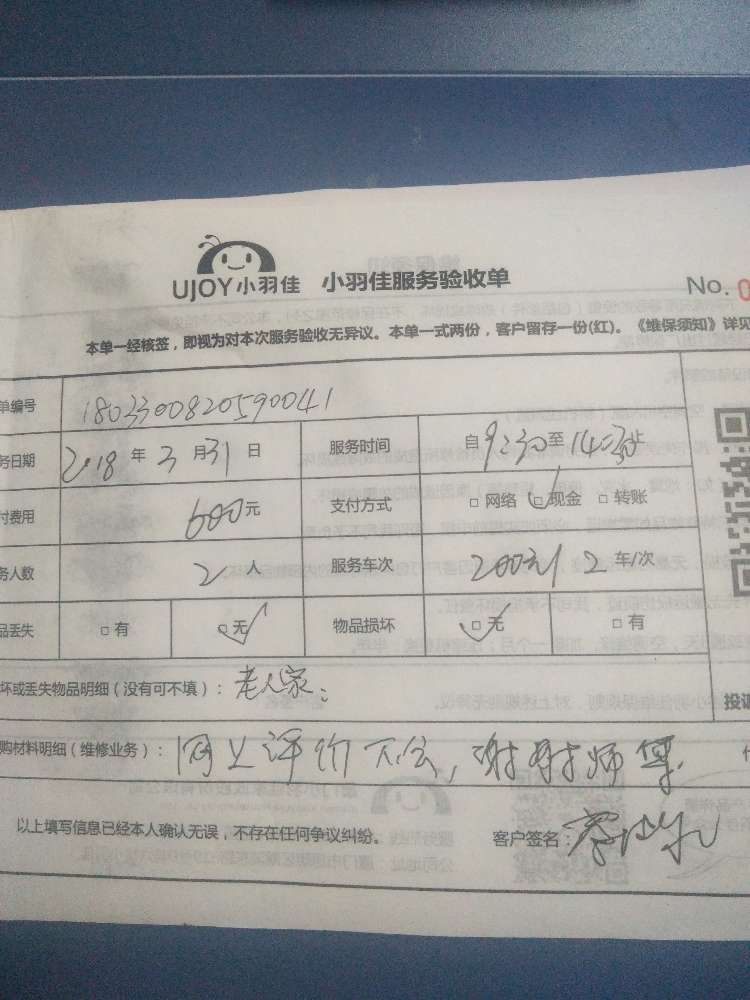 UJOY小羽佳 小羽佳服务验收单
No. 0
本单一经核签，即视为对本次服务验收无异议。本单一式两份，客户留存一份(红)。《维保须知》详见
单编号 1803300820590041
务日期 2018 年 3 月 31 日 服务时间 自 9:30 至 14:30 止
付费用 600 元 支付方式 □ 网络 □ 现金 □ 转账
务人数 2 人 服务车次 200元/ 2 车/次
品丢失 □ 有 □ 无 物品损坏 □ 无 □ 有
坏或丢失物品明细（没有可不填）： 老人家：
投诉
购材料明细（维修业务）： 网上评价不会，谢谢师傅
以上填写信息已经本人确认无误，不存在任何争议纠纷。 客户签名：